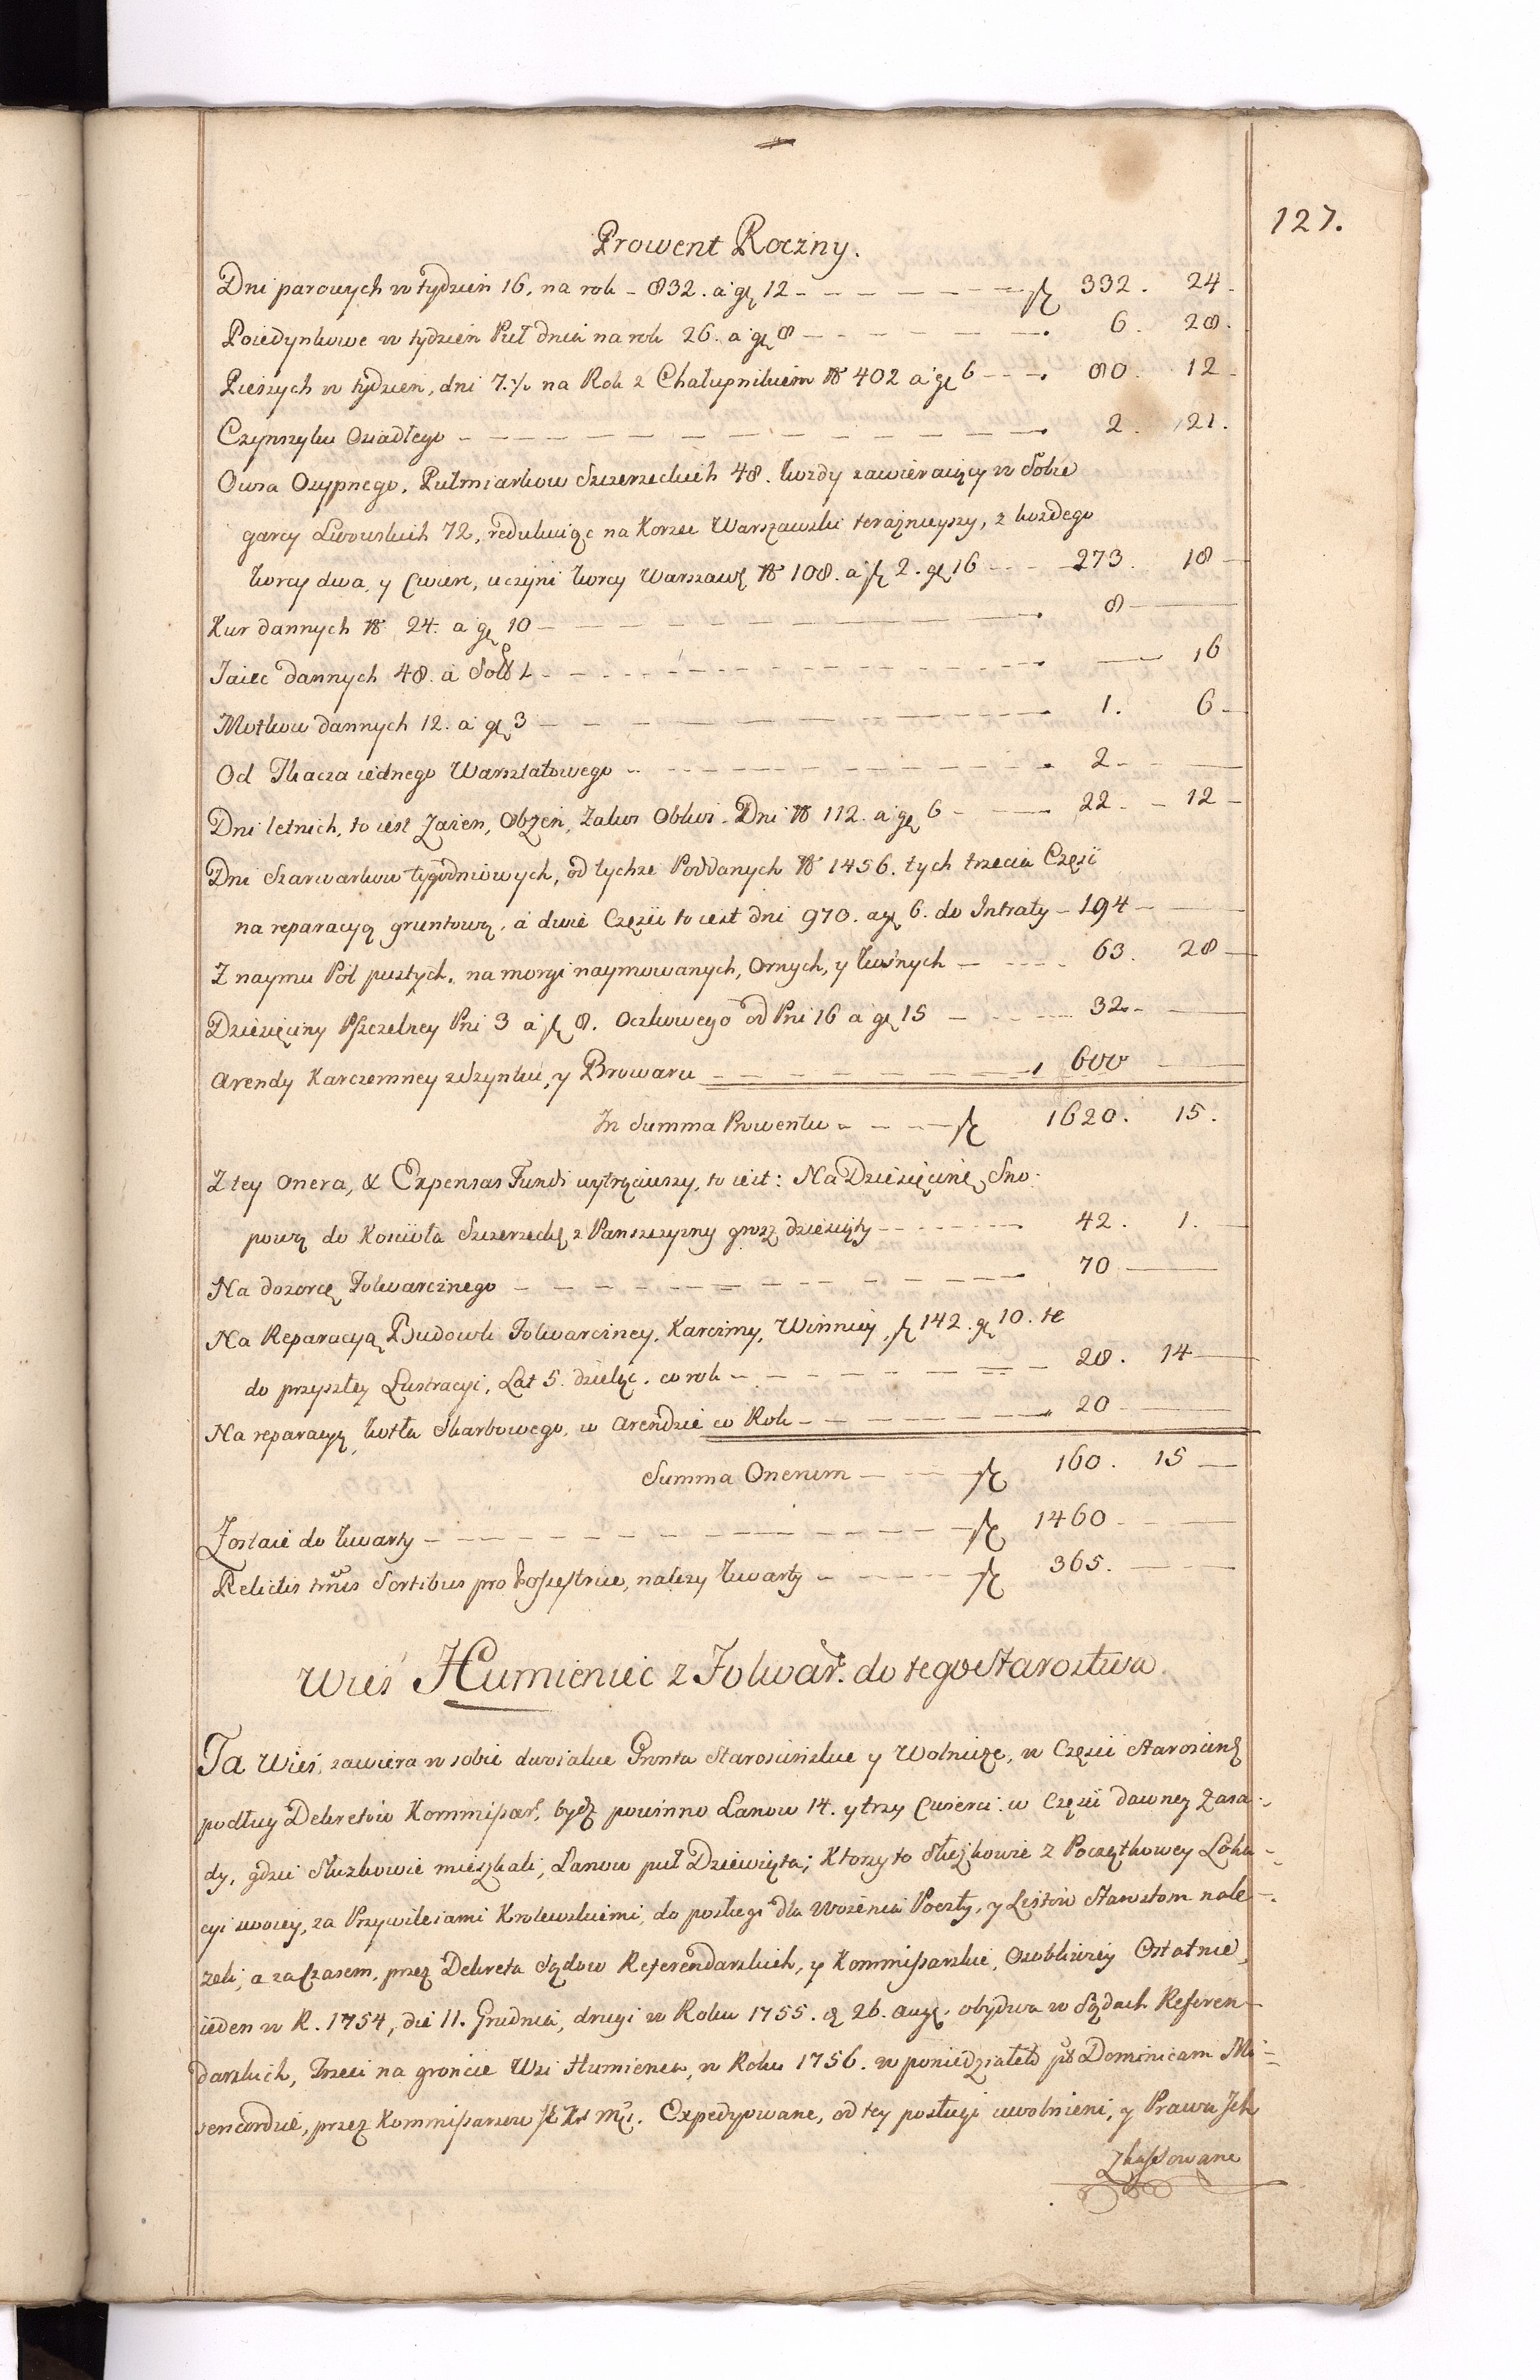 127.
Prowent Roczny.
Dni parowych w tydzień 16, na rok - 832. a gł 12 - - - - fł 332. 24 -
Poiedynkowe w tydzień Puł dnia na rok 26. a gł 8 - - - - 6. 28.
Pieszych w tydzień, dni 7. ¾ na Rok z Chałupnikiem No 402 a gł 6 - - - 80. 12 -
Czynszyku Osiadłego - - - - 2. 21.
Owsa Osypnego, Pułmiarkow Szczerzeckich 48. kożdy zawieraiący w Sobie
garcy Lwowskich 72, redukuiąc na Korzec Warszawski teraźnieyszy, z kożdego
korcy dwa, y Cwierc, uczyni korcy Warszawſ No 108. a fł 2. gł 16 - - - 273. 18 -
Kur dannych No 24. a gł 10 - - - - 8 -
Jaiec dannych 48. a Sold 1 - - - - 16
Motkow dannych 12. a gł 3 - - - - 1. 6 -
Od Tkacza iednego Warsztatowego - - - - 2 - -
Dni letnich, to iest Zażen, Obżen, Zakos Obkos. Dni No 112. a gł 6 - - - 22. - 12 -
Dni Szarwarkow tygodniowych, od tychże Poddanych No 1456. tych trzecia Częsć
na reparacyą gruntową, a dwie Częsci to iest dni 970. a gł 6. do Intraty - 194 -
Z naymu Pól pustych, na morgi naymowanych, Ornych, y kosnych - - - 63. 28 -
Dziesięciny Pszczelney Pni 3 a fł 8. Oczkowego od Pni 16 a gł 15 - - - 32 -
Arendy Karczemney z Szynku, y Browaru - - - - 600 -
In Summa Prowentu - - - fł 1620. 15.
Z tey Onera, & Expensas Fundi wytrąciwszy, to iest: Na Dziesięcinę Sno-
pową do Koscioła Szczerzeckſ z Panszczyzny grosz dziesiąty - - - - 42. 1. -
Na dozorcę Folwarcznego - - - - 70 -
Na Reparacyą Budowli Folwarczney, Karczmy, Winnicy, fł 142. gł 10. te
do przyszłey Lustracyi, Lat 5. dzieląc, co rok - - - - 28. 14 -
Na reparacyą kotła Skarbowego, w Arendzie co Rok - - - - 20 -
Summa Onerum - - - fł 160. 15 -
Zostaie do kwarty - - - - fł 1460 - -
Relictis tribus Sortibus pro Possessore, należy kwarty - - - fł 365. - -
Wieś Humieniec z Folwar. do tego Starostwa.
Ta Wieś, zawiera w sobie dwoiakie Gronta Starościnskie y Wolnicze, w Częsci Starościnſ
podług Dekretow Kommissar, bydź powinno Łanow 14. y trzy Cwierci. w Częsci dawney Zasa-
dy, gdzie Służkowie mieszkali, Łanow puł Dziewięta; Ktorzy to Służkowie z Początkowey Loka-
cyi swoiey, za Przywileiami Krolewskiemi, do posługi dla Wożenia Poczty, y Listow Starostom nale-
żeli, a za czasem, przez Dekreta Sądow Referendarskich, y Kommissarskie, Osobliwiey Ostatnie,
ieden w R. 1754, die 11. Grudnia, drugi w Roku 1755. d 26. Aug. obydwa w Sądach Referen-
darskich, Trzeci na groncie Wsi Humienca, w Roku 1756. w poniedziałek pt Dominicam Mi-
sericordiæ, przez Kommissarzow JK Mci. Expedyowane, od tey posługi uwolnieni, y Prawa Ich
Zkassowane